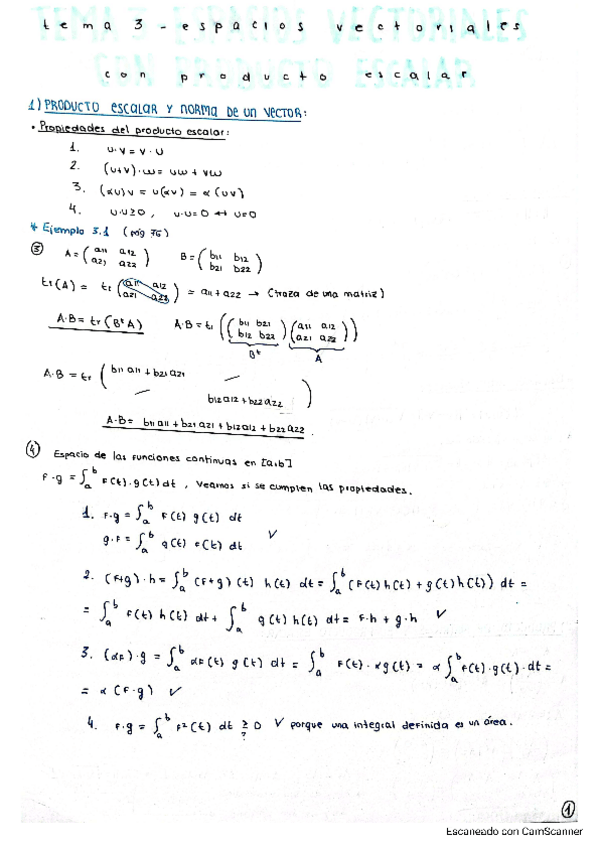 tema 3 - espacios vectoriales
con producto escalar
1) PRODUCTO escalar y norma de un vector:
• Propiedades del producto escalar:
1. u·v = v·u
2. (u+v)·w = uw + vw
3. (αu)v = u(αv) = α(uv)
4. u·u≥0, u·u=0 ↔ u=0
* Ejemplo 3.1 (pág 76)
③ A = (a11 a12 / a21 a22) B = (b11 b12 / b21 b22)
tr(A) = tr (a11 a12 / a21 a22) = a11 + a22 → (traza de una matriz)
A·B = tr(Bᵗ A) A·B = tr ((b11 b21 / b12 b22)(a11 a12 / a21 a22))
Bᵗ A
A·B = tr (b11 a11 + b21 a21 — / — b12 a12 + b22 a22)
A·B = b11 a11 + b21 a21 + b12 a12 + b22 a22
④ Espacio de las funciones continuas en [a,b]
F·g = ∫ₐᵇ F(t)·g(t) dt, veamos si se cumplen las propiedades.
1. F·g = ∫ₐᵇ F(t) g(t) dt
g·F = ∫ₐᵇ g(t) F(t) dt √
2. (F+g)·h = ∫ₐᵇ (F+g)(t) h(t) dt = ∫ₐᵇ (F(t)h(t) + g(t)h(t)) dt =
= ∫ₐᵇ F(t) h(t) dt + ∫ₐᵇ g(t) h(t) dt = F·h + g·h √
3. (αF)·g = ∫ₐᵇ αF(t) g(t) dt = ∫ₐᵇ F(t)·αg(t) = α ∫ₐᵇ F(t)·g(t)·dt =
= α (F·g) √
4. F·g = ∫ₐᵇ F²(t) dt ≥ 0 √ porque una integral definida es un área.
?
①
Escaneado con CamScanner